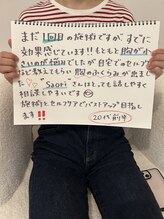 まだ1回目の施術ですが、すでに
効果感じています!!もともと胸が小
さいのが悩みでしたが自宅でのセルフケア
など教えてもらい胸のふくらみが出まし
た♡♡"Saori"さんはとても話しやすく
相談しやすいです
施術とセルフケアでバストアップ目指し
ます!!
20代前半